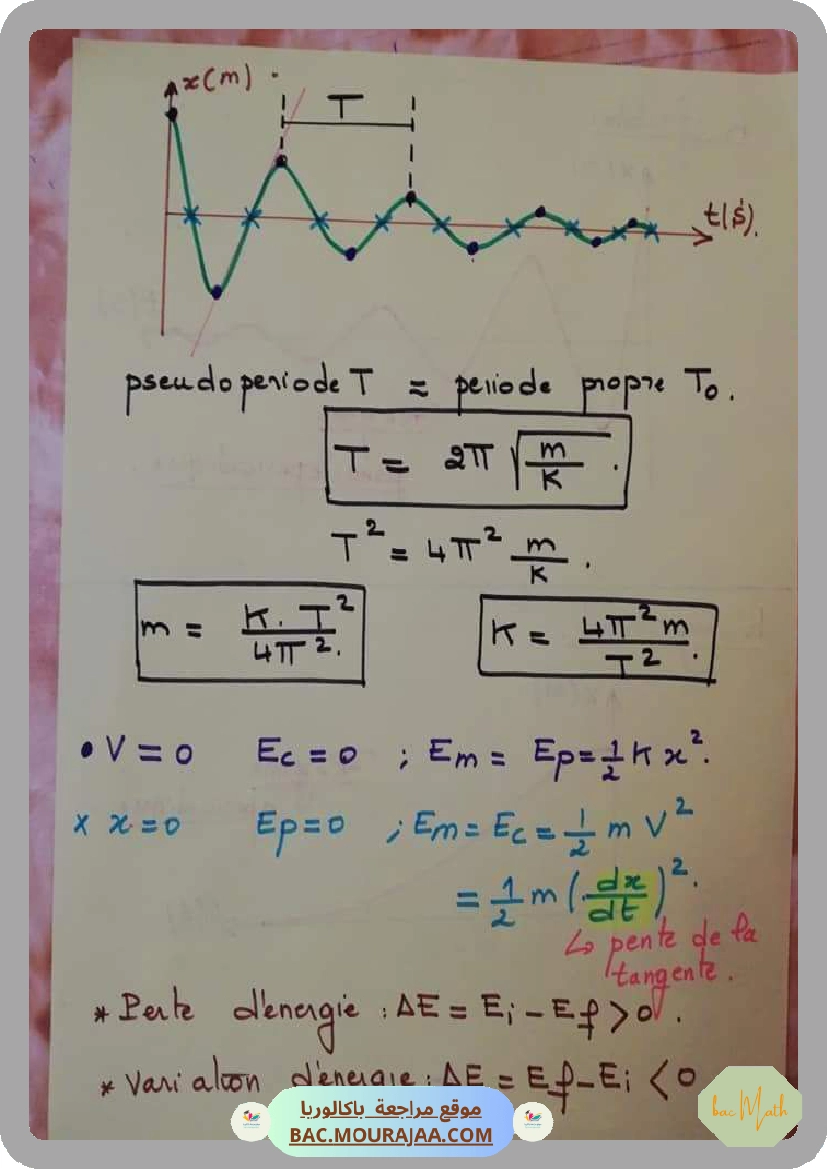 x(m)
T
t(s).
pseudo periode T ≈ periode propre T₀.
T = 2π √(m/K).
T² = 4π² m/K.
m = K.T²/4π².
K = 4π²m/T².
• V = 0 Ec = 0 ; Em = Ep = 1/2 K x².
x x = 0 Ep = 0 ; Em = Ec = 1/2 m V²
= 1/2 m (dx/dt)².
↳ pente de la
tangente.
* Perte d'énergie : ΔE = Ei - Ef > 0.
* Variation d'énergie : ΔE = Ef - Ei < 0
موقع مراجعة باكالوريا
BAC.MOURAJAA.COM
bac Math